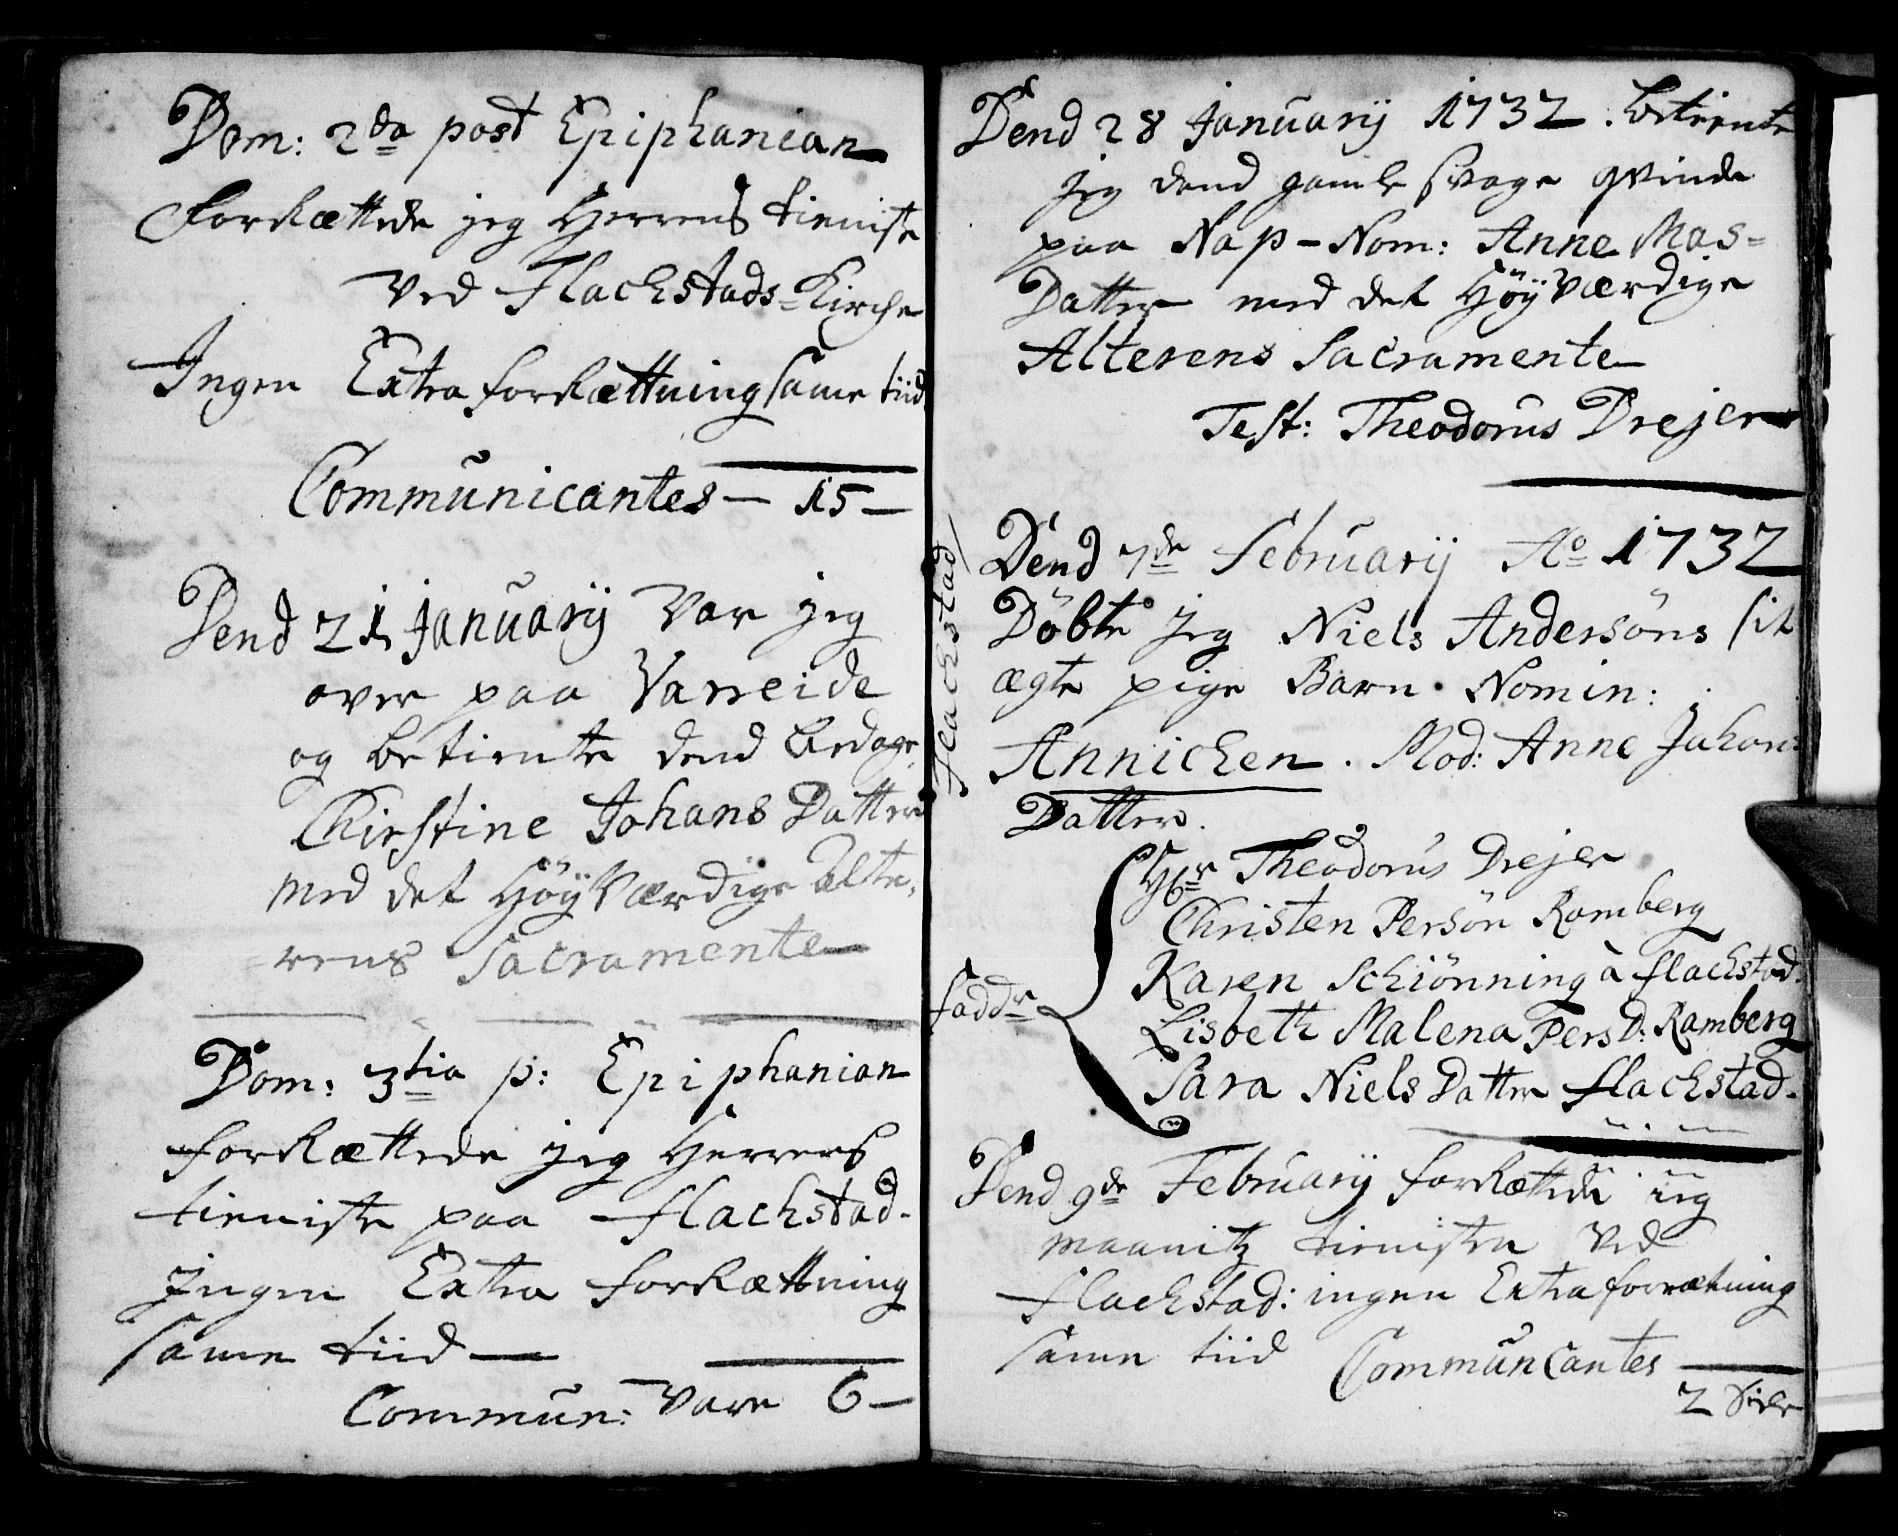 Dom: 2da post Epiphanian
forRættede jeg Herrens tieniste
ved Flachstads=Kirche
Ingen Extra forRættning same tiid
Communicantes — 15 —
Dend 21 Januarij var jeg
over paa Vareide
og betiente dend bedage,
Chirstine Johans Datter
med det HöyVærdige Alte,
rens Sacramente
Dom: 3tia p: Epiphanian
forRættede jeg Herrens
tieniste paa Flachstad.
Ingen Extra forRættning
same tiid —
Commun: vare 6 —
Dend 28 Januarij 1732. betiente
jeg dend gamle svage qvinde
paa Nap - Nom: Anne Mas=
Datter med det HöyVærdige
Alterens Sacramente
Test: Theodorus Drejer
Flachstad
Dend 7de Februarij Ao 1732
Döbte jeg Niels Andersöns sit
ægte pige Barn. Nomin:
Annichen. Mod: Anne Johan:
Datter.
Faddr
Hr Theodorus Drejer
Christen Persön Ramberg
Karen Schiönning à Flachstad.
Lisbeth Malena PersD: Ramberg
Sara Niels Datter Flachstad.
Dend 9de Februarij forRættede ieg
maanitz tienisten ved
Flachstad: ingen Extra forrætning
same tiid Communcantes
2 Siele